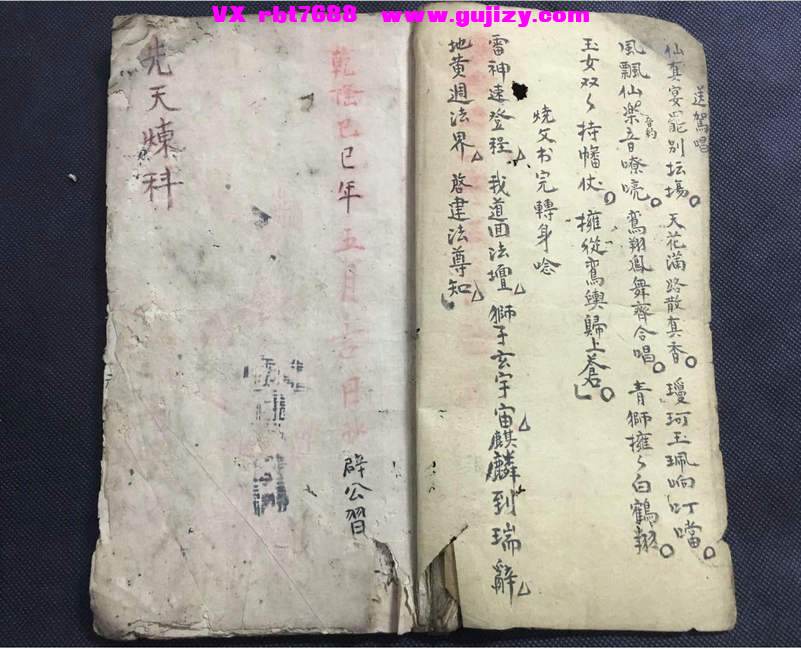 VX rbt7688 www.gujizy.com
送駕唱
仙真宴罷別坛場。天花滿路散真香。瓊珂玉珮响叮噹。
風飄仙樂音嘹喨。鸞翔鳳舞齊合唱。青獅擁々白鶴翔。
玉女双々持幡仗。擁從鸞輿歸上蒼。
燒文书完轉身唸
雷神速登程△我道回法壇△獅子玄宇宙△麒麟到瑞辭△
地黄週法界△啓建法尊知△
乾隆己巳年五月 日
辟公習
先天煉科